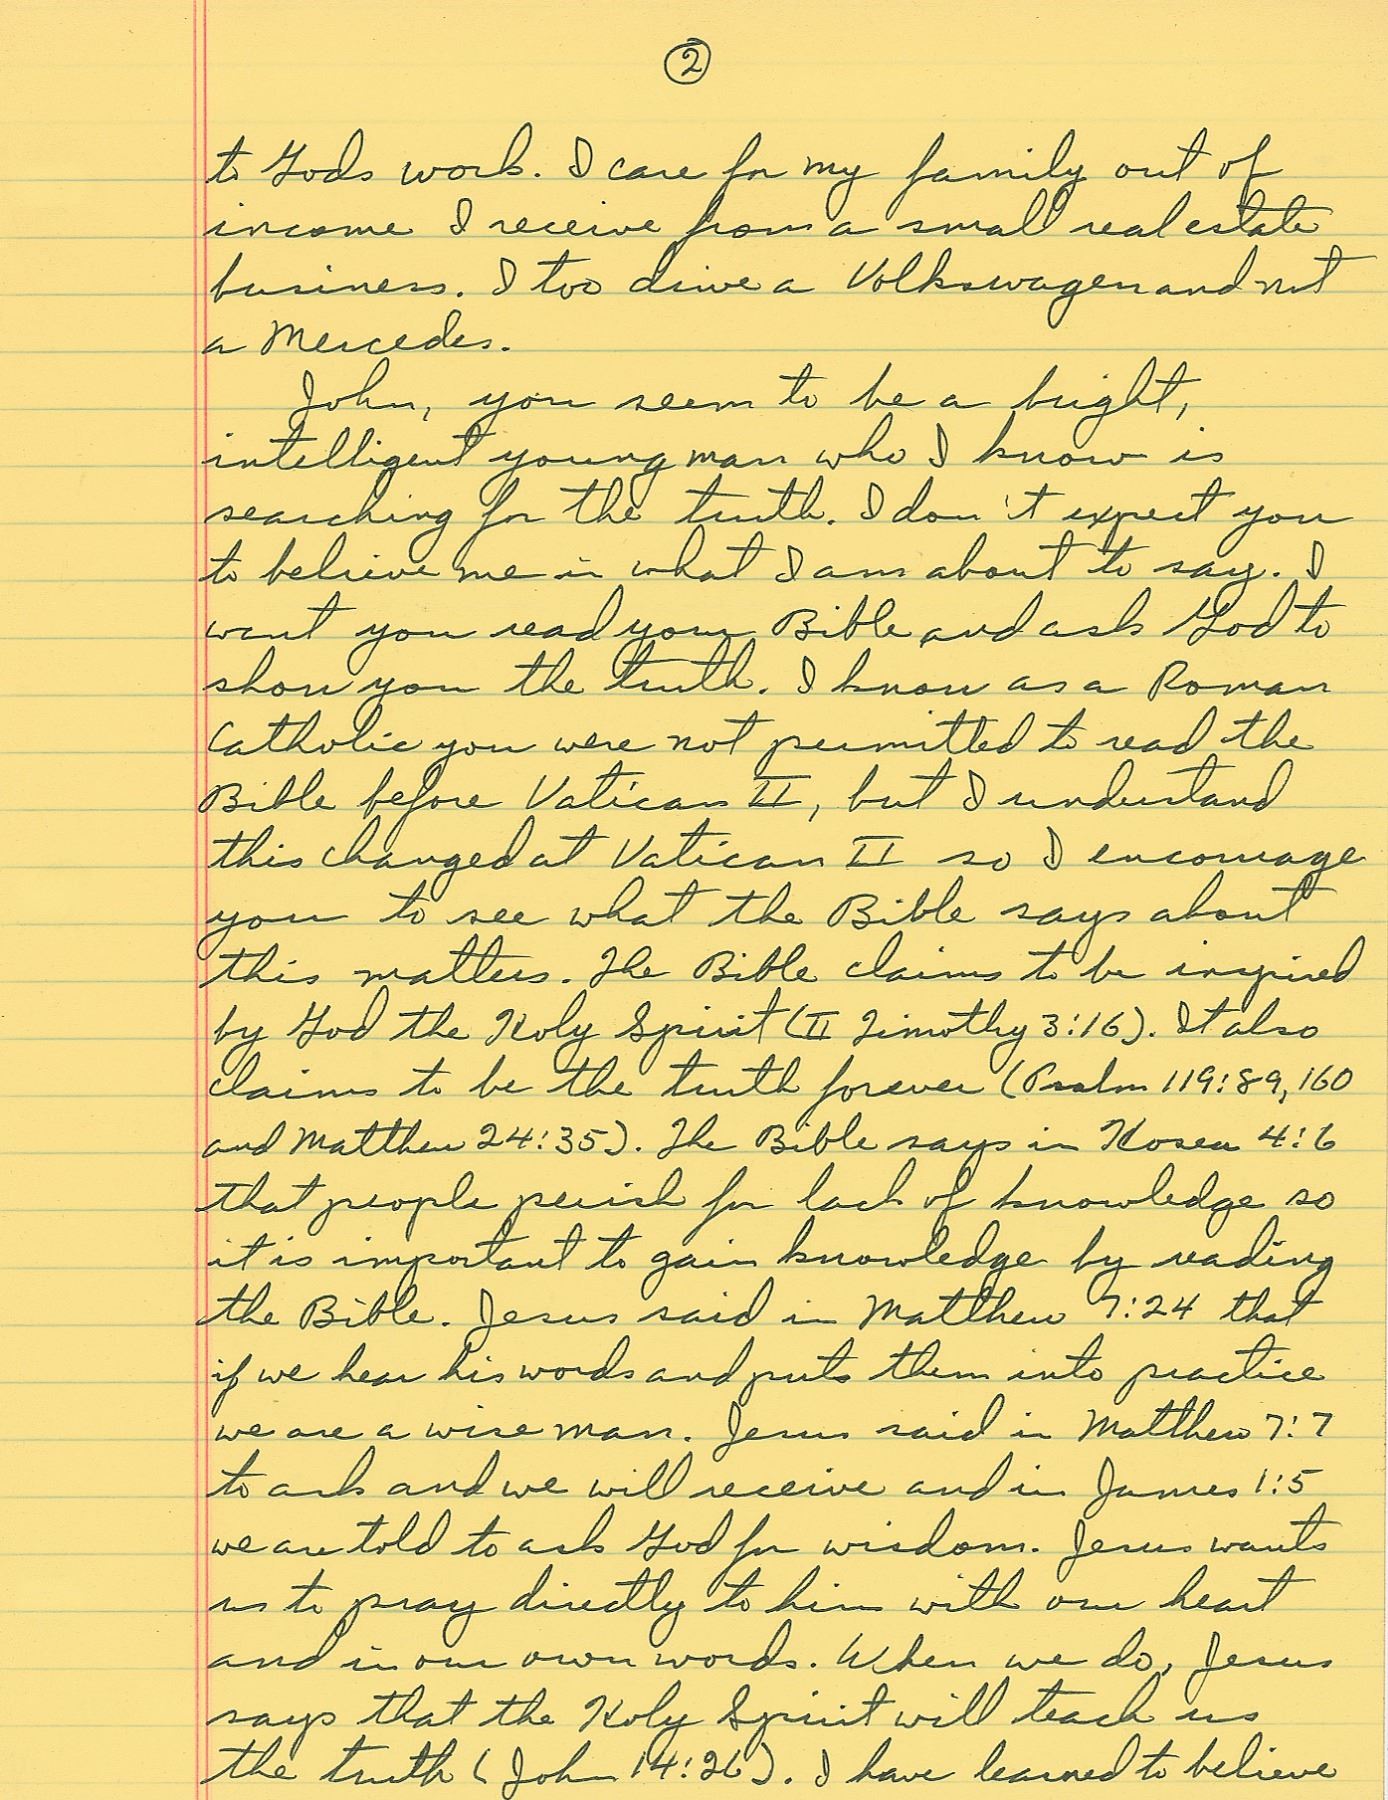 2
to Gods work. I care for my family out of
income I receive from a small real estate
business. I too drive a Volkswagen and not
a Mercedes.
John, you seem to be a bright,
intelligent young man who I know is
searching for the truth. I don't expect you
to believe me in what I am about to say. I
want you read your Bible and ask God to
show you the truth. I know as a Roman
Catholic you were not permitted to read the
Bible before Vatican II, but I understand
this changed at Vatican II so I encourage
you to see what the Bible says about
this matters. The Bible claims to be inspired
by God the Holy Spirit (II Timothy 3:16). It also
claims to be the truth forever (Psalm 119:89, 160
and Matthew 24:35). The Bible says in Hosea 4:6
that people perish for lack of knowledge so
it is important to gain knowledge by reading
the Bible. Jesus said in Matthew 7:24 that
if we hear his words and puts them into practice
we are a wise man. Jesus said in Matthew 7:7
to ask and we will receive and in James 1:5
we are told to ask God for wisdom. Jesus wants
us to pray directly to him with our heart
and in our own words. When we do, Jesus
says that the Holy Spirit will teach us
the truth (John 14:26). I have learned to believe